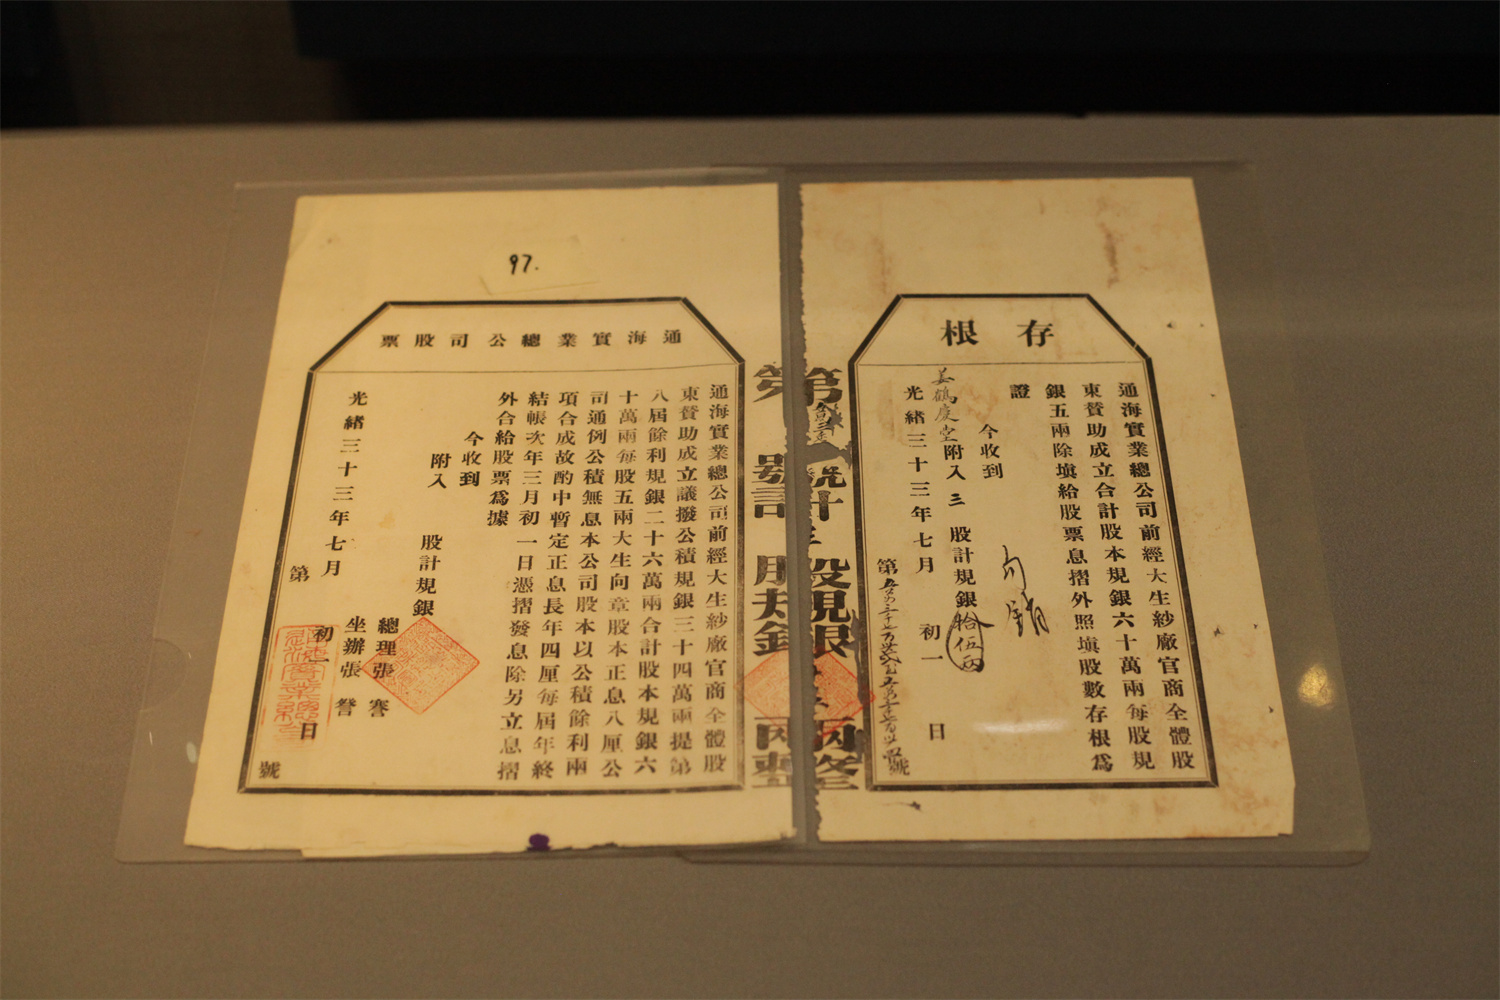 97.
通海實業總公司股票
通海實業總公司前經大生紗廠官商全體股
東贊助成立議撥公積規銀三十四萬兩提第
八屆餘利規銀二十六萬兩合計股本規銀六
十萬兩每股五兩大生向章股本正息八厘公
司通例公積無息本公司股本以公積餘利兩
項合成故酌中暫定正息長年四厘每屆年終
結帳次年三月初一日憑摺發息除另立息摺
外合給股票為據
今收到
附入 股計規銀
總理張謇
坐辦張詧
光緒三十三年七月初一日
第 號
第 號計三股規銀 兩整
存根
通海實業總公司前經大生紗廠官商全體股
東贊助成立合計股本規銀六十萬兩每股規
銀五兩除填給股票息摺外照填股數存根為
證
今收到
姜鶴慶堂附入三股計規銀拾伍兩
光緒三十三年七月初一日
第 號